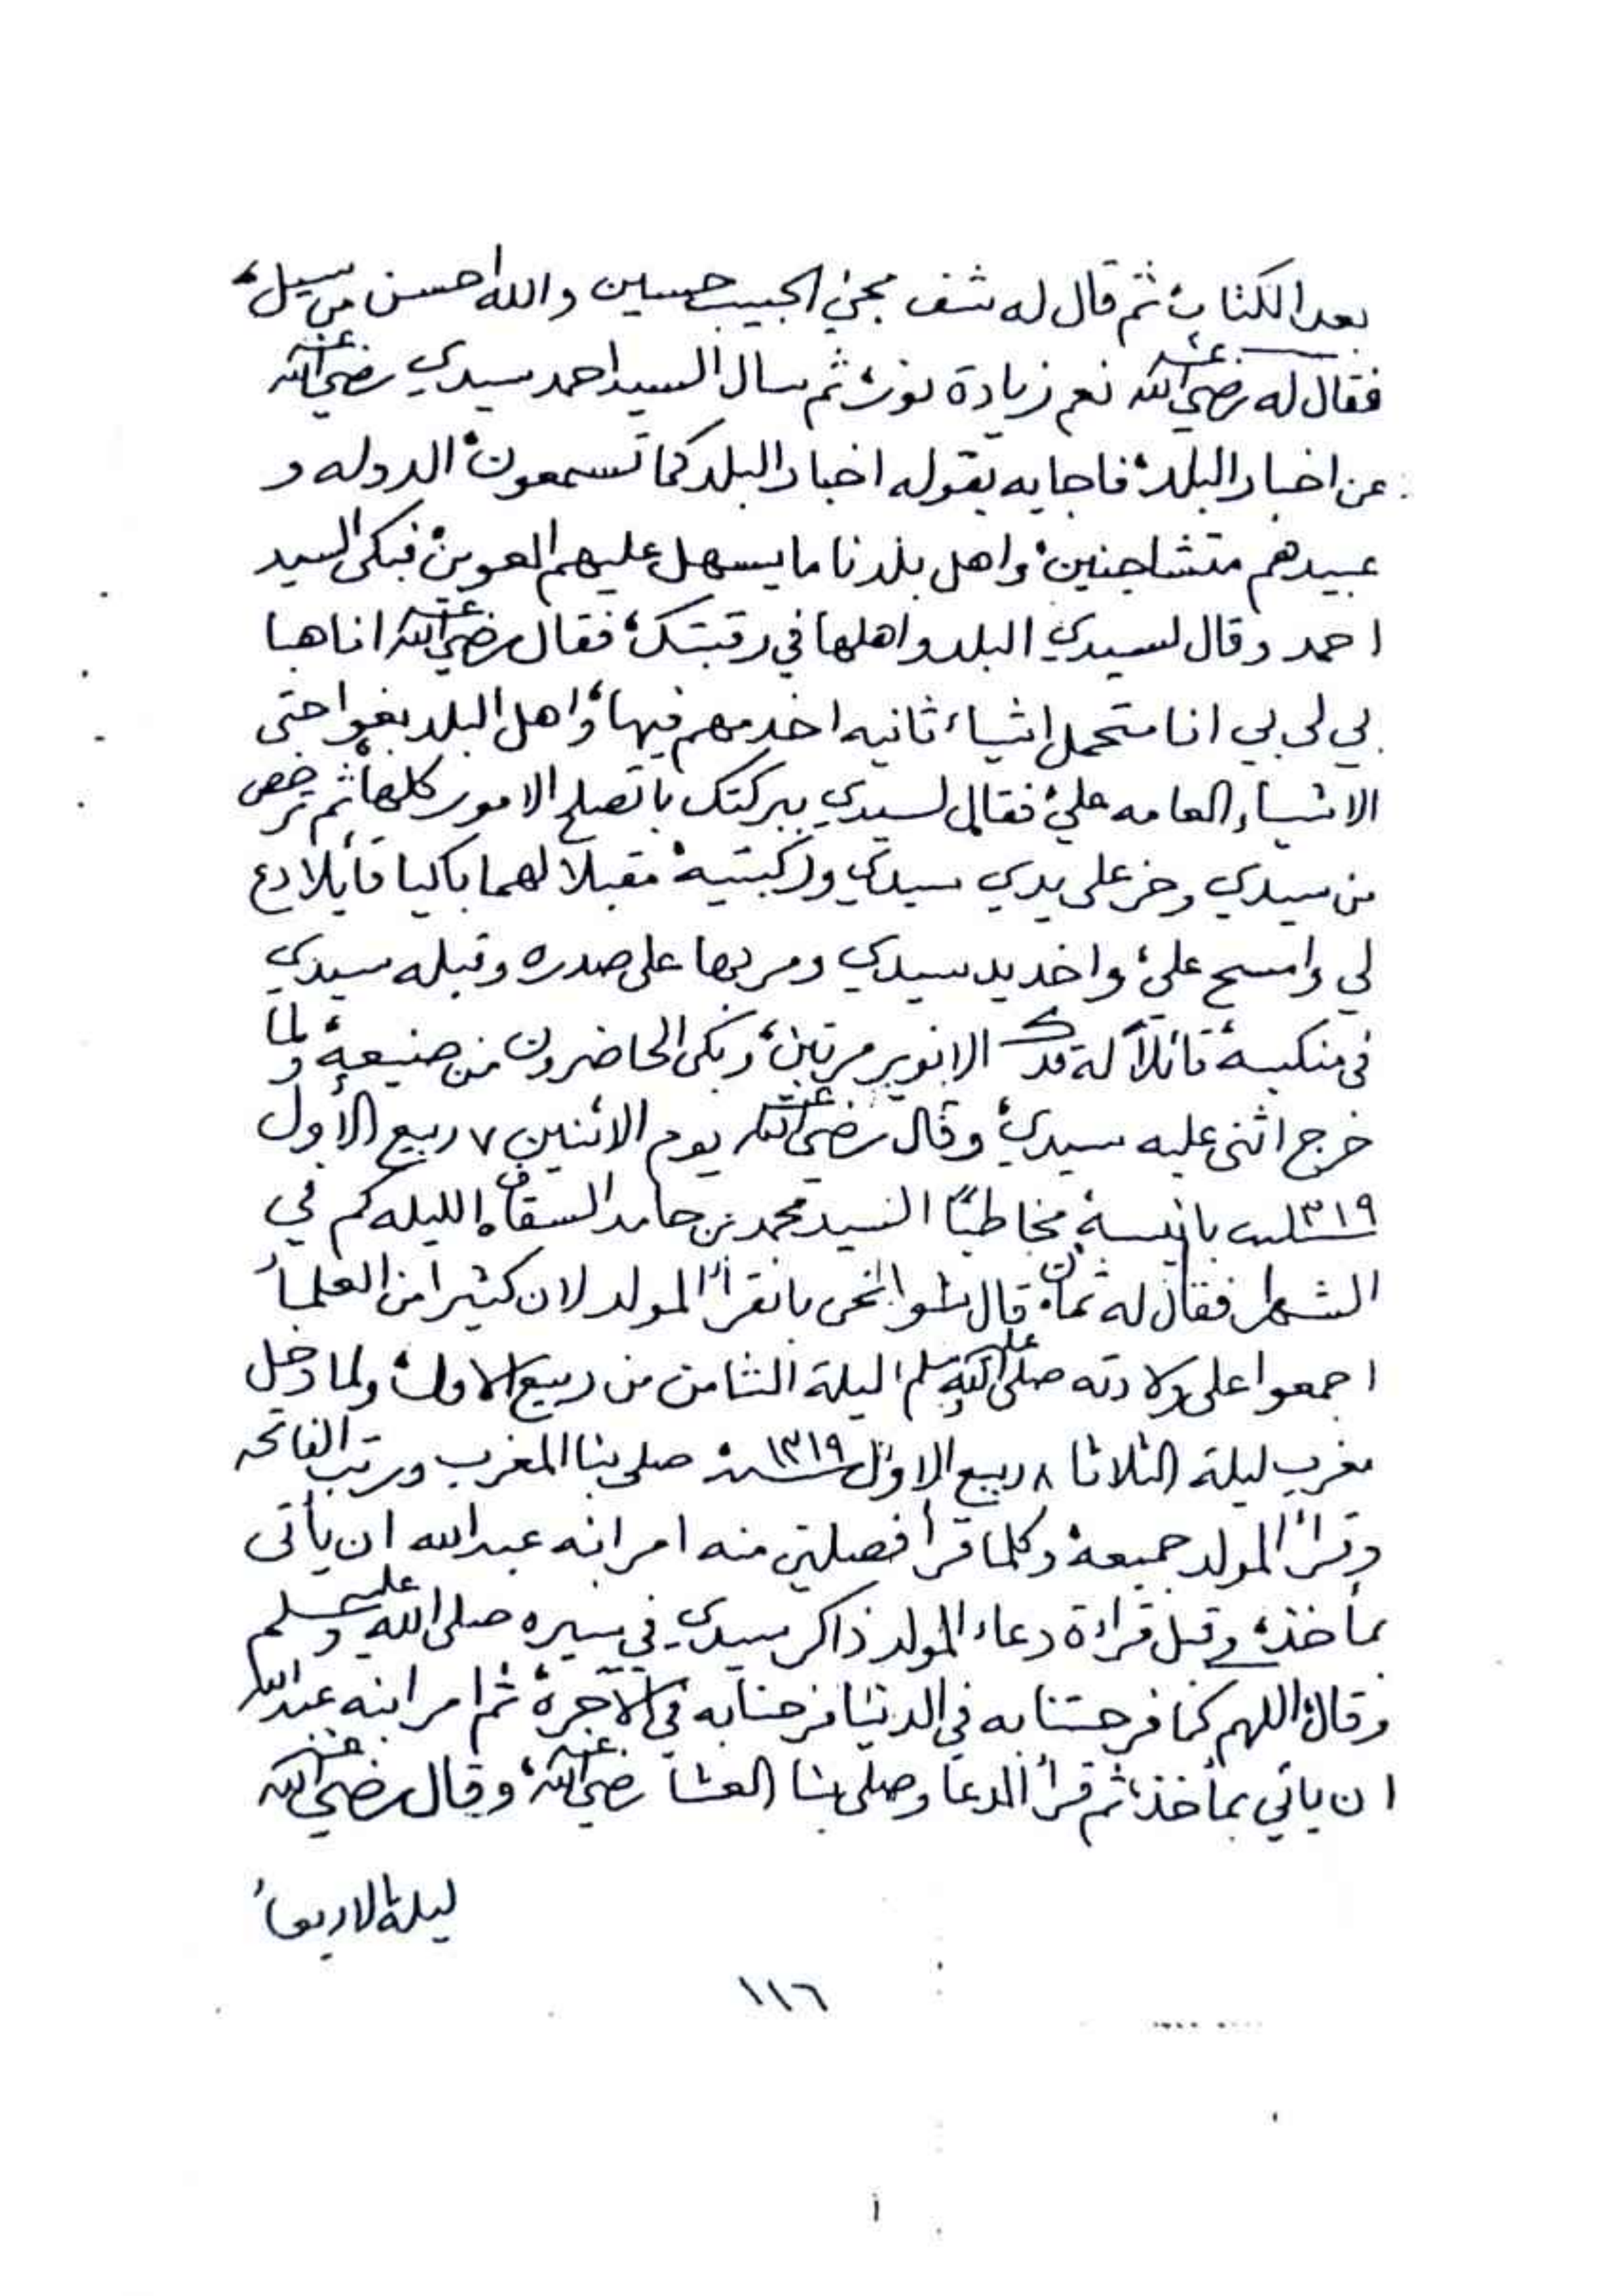 بعد الكتاب، ثم قال له شف مجي الحبيب حسين والله احسن من سيل،
فقال له رضي الله عنه نعم زيادة نور، ثم سال السيد احمد سيدي رضي الله عنه
عن اخبار البلد، فاجابه بقوله اخبار البلد كما تسمعون، الدوله و
عبيدهم متشاحنين، واهل بلدنا ما يسهل عليهم العوين، فبكى السيد
احمد وقال لسيدي البلد واهلها في رقبتك، فقال رضي الله عنه انا هبا
لي لي بي انا متحمل اشياء ثانيه اخدمهم فيها، واهل البلد بغوا حتى
الاشياء العامه علي، فقال لسيدي ببركتك باتصلح الامور كلها، ثم ترخص
من سيدي وخر على يدي سيدي وركبتيه، مقبلا لهما باكيا قايلا دع
لي وامسح علي، واخد يد سيدي ومر بها على صدره وقبله سيدي
في منكبيه، قائلاً له قدك الا نوير مرتين، وبكى الحاضرون من صنيعه، ولما
خرج اثنى عليه سيدي، وقال رضي الله عنه يوم الاثنين ٧ ربيع الأول
١٣١٩ سنة بانيسه مخاطبًا السيد محمد بن حامد السقاف، الليله كم في
الشهر، فقال له ثمان، قال شوا نحن بانقرأ المولد لان كثيرا من العلمأ
اجمعوا على ولادته صلى الله عليه وسلم ليلة الثامن من ربيع الاول، ولما دخل
مغرب ليلة الثلاثا ٨ ربيع الاول ١٣١٩ سنة صلى بنا المغرب ورتب الفاتحه
وقرأ المولد جميعه، وكلما قرأ فصلين منه امر ابنه عبدالله ان يأتى
بمأخذ، وقبل قراءة دعاء المولد ذاكر سيدي في سيره صلى الله عليه وسلم
وقال، اللهم كما فرحتنا به في الدنيا فرحنا به في الآخرة، ثم امر ابنه عبدالله
ان ياتي بمأخذ، ثم قرأ الدعا وصلى بنا العشا رضي الله عنه، وقال رضي الله عنه
ليلة الاربعاء
١١٦